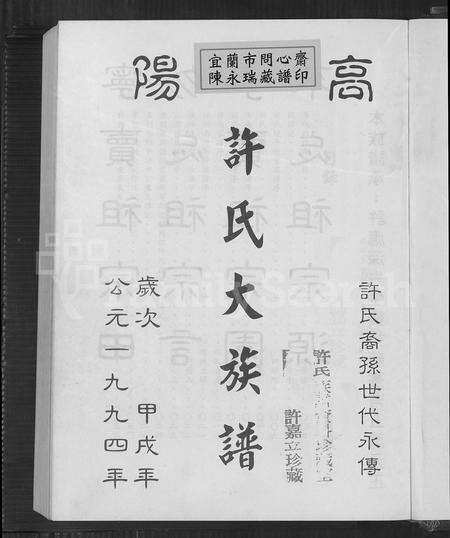 高陽
宜蘭市問心齋
陳永瑞藏譜印
許氏裔孫世代永傳
許氏大族譜
許嘉立珍藏
歲次 甲戌年
公元一九九四年